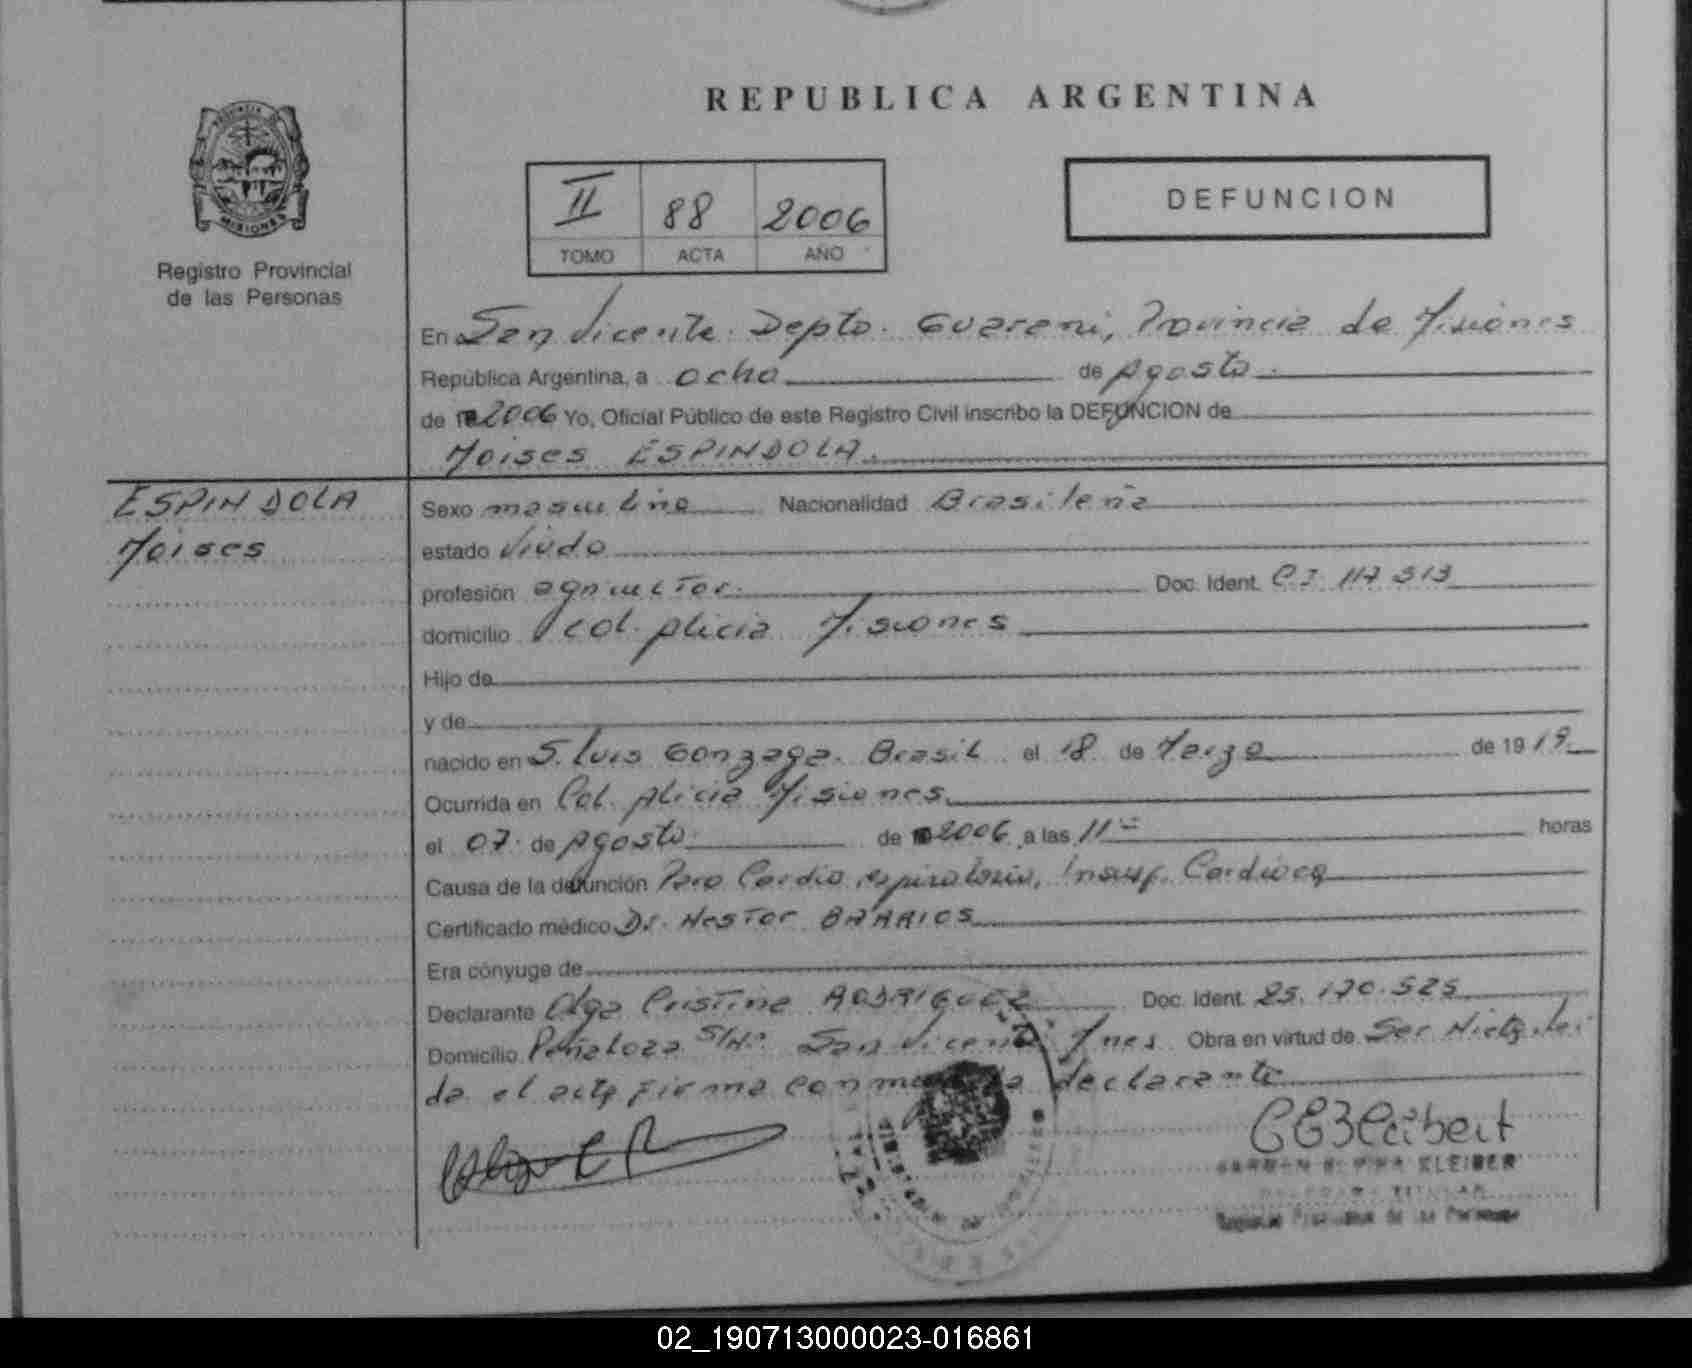 REPUBLICA ARGENTINA
PROVINCIA DE
MISIONES
Registro Provincial
de las Personas
II 88 2006
TOMO ACTA AÑO
DEFUNCION
En San Vicente Depto. Guarani, Provincia de Misiones
República Argentina, a ocho de Agosto
de 2006 Yo, Oficial Público de este Registro Civil inscribo la DEFUNCION de
Moises ESPINDOLA
ESPINDOLA
Moises
Sexo masculino Nacionalidad Brasileña
estado Viudo
profesión agricultor Doc. Ident. C.I. 117.513
domicilio Col. Alicia Misiones
Hijo de
y de
nacido en S. Luis Gonzaga. Brasil el 18 de Marzo de 1919
Ocurrida en Col. Alicia Misiones
el 07 de Agosto de 2006 a las 11 horas
Causa de la defunción Paro Cardio respiratorio, Insuf. Cardiaca
Certificado médico Dr. Nestor BARRIOS
Era cónyuge de
Declarante Olga Cristina RODRIGUEZ Doc. Ident. 25.170.525
Domicilio Peñaloza S/Nº San Vicente Mnes Obra en virtud de Ser Nieta lei
da el acta firma conmigo la declarante
KLEIBER
TITULAR
02_190713000023-016861